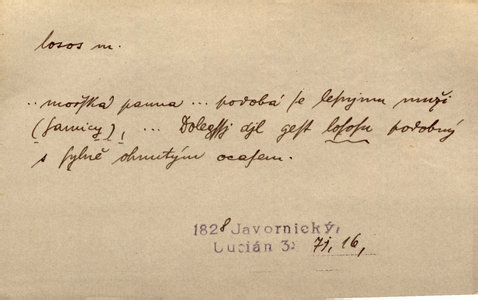 losos m.
.. mořská panna ... podobá se lepssjmu muži
(samicy), ... Dolegssj djl gest lososu podobný
s sylně ohnutým ocasem.
1828 Javornický,
Lucián 3: 71, 16,